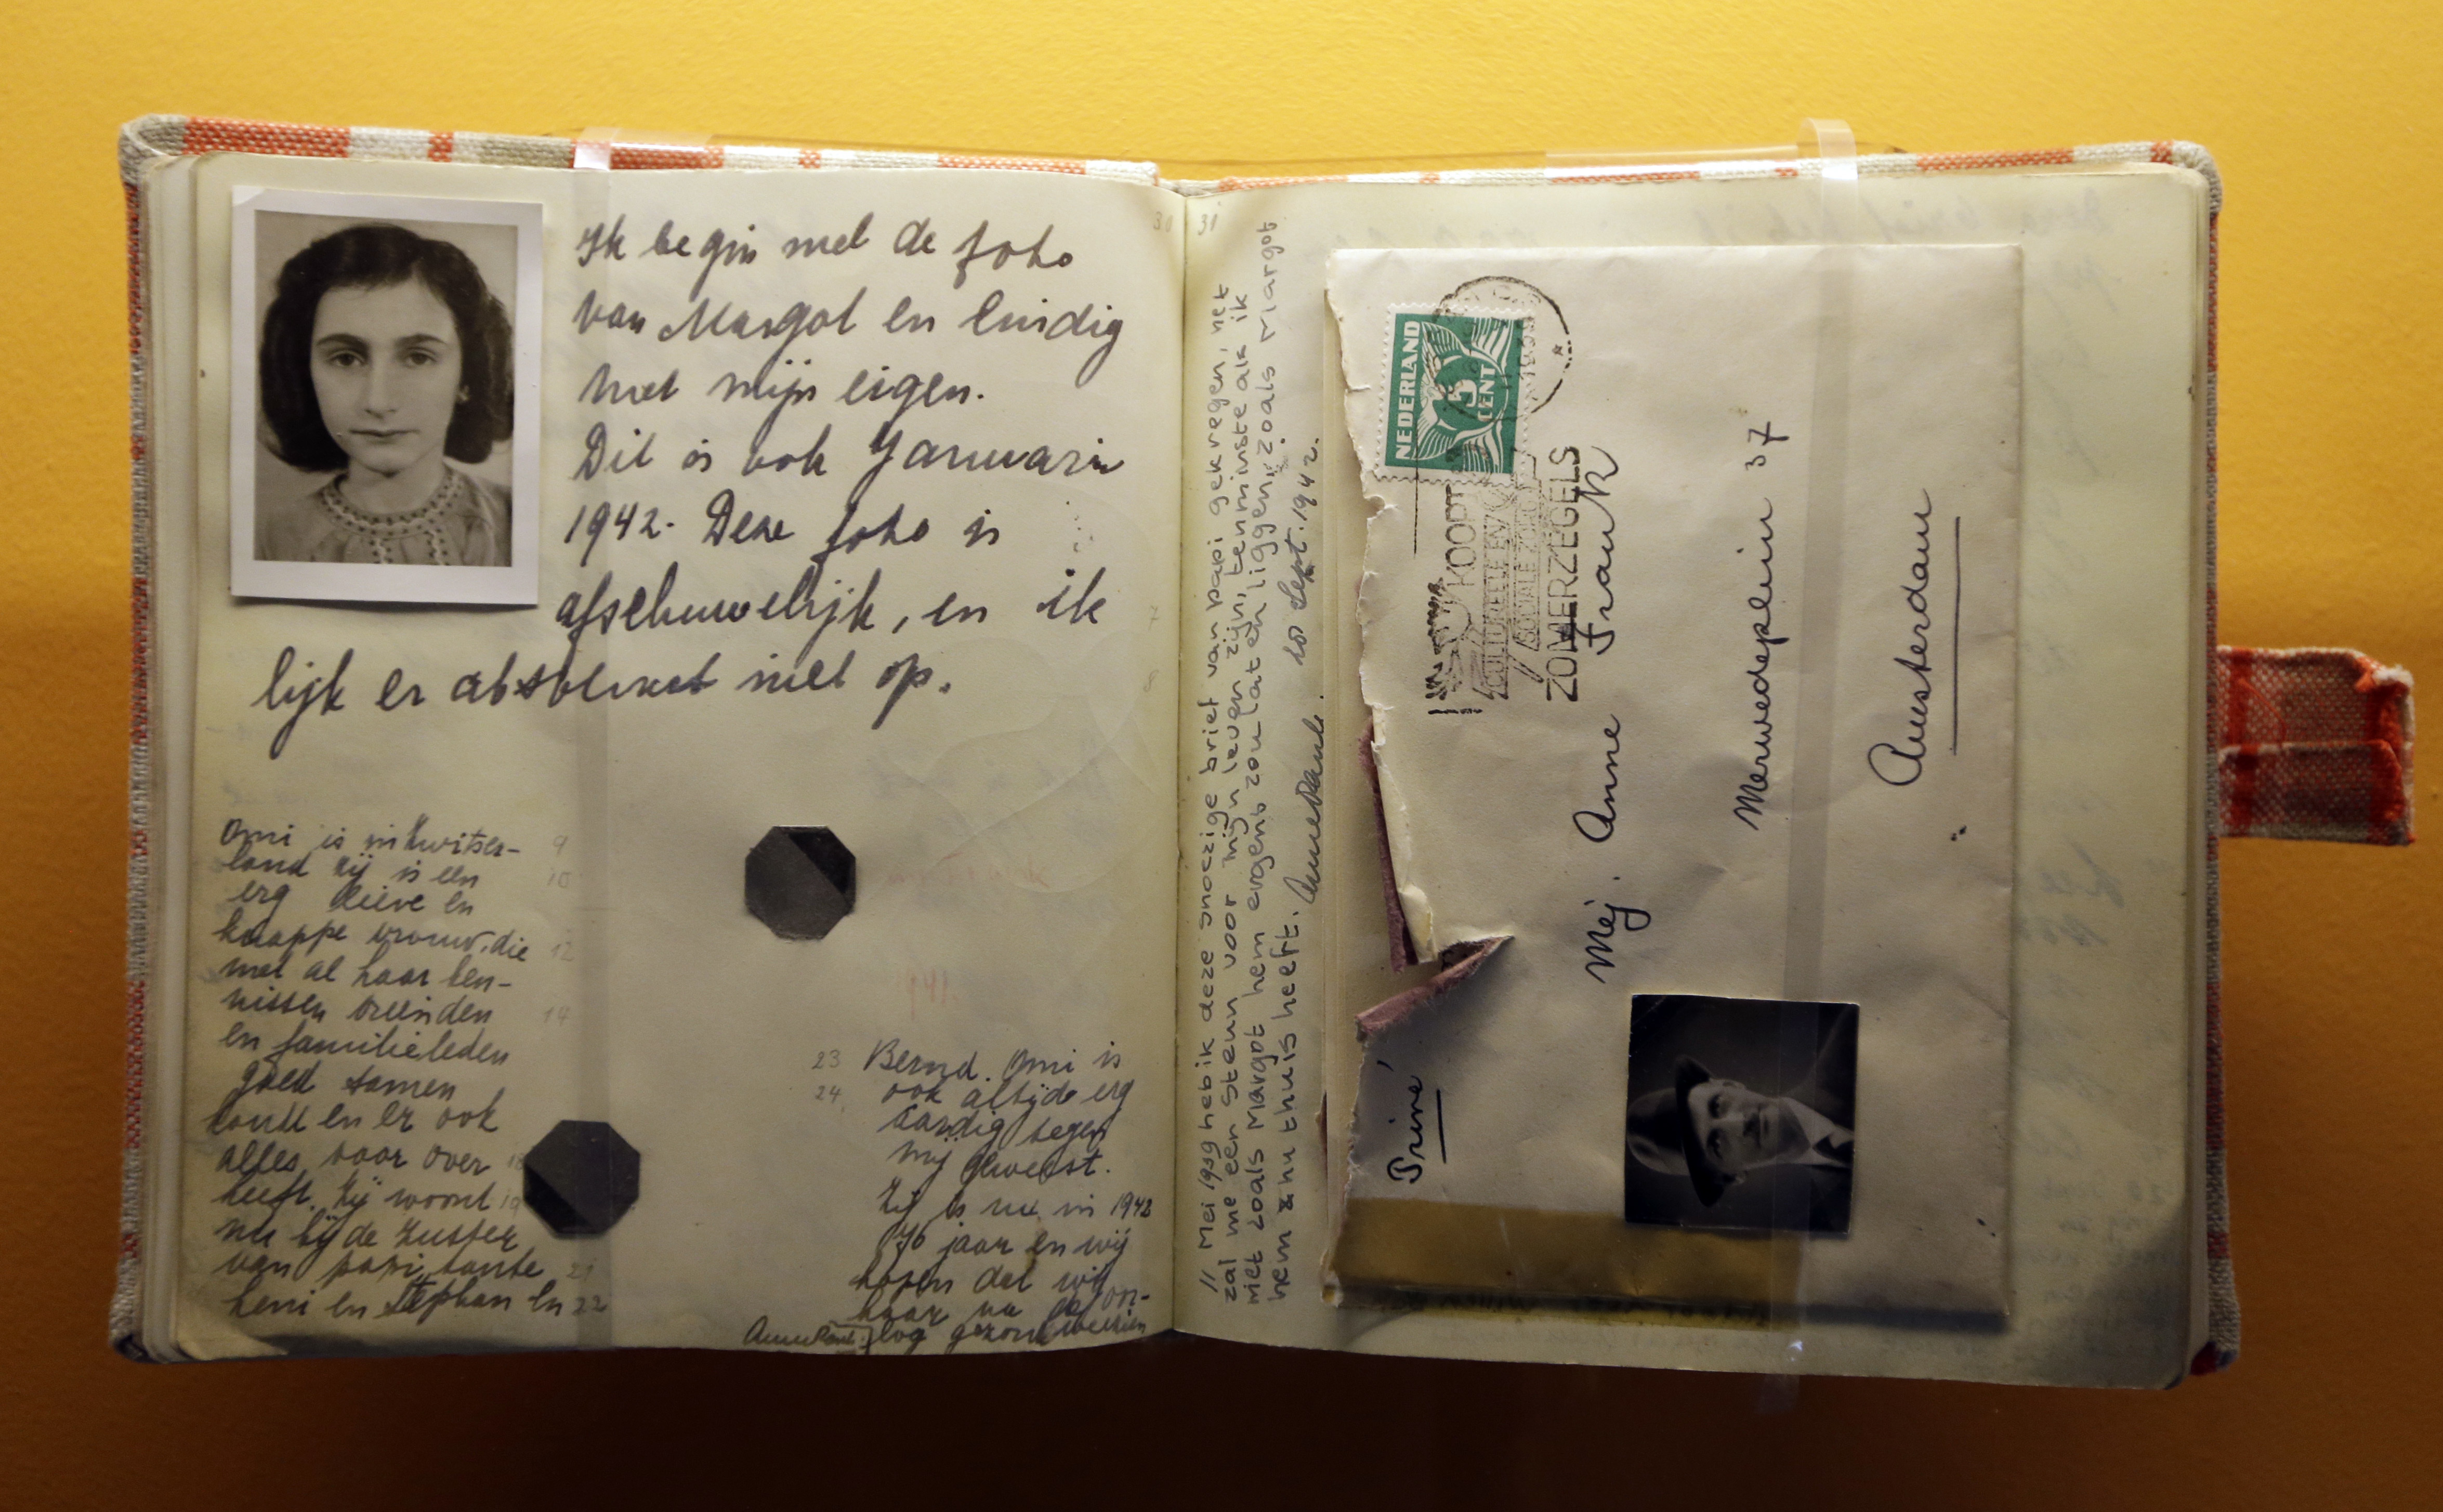 Ik begin met de foto
van Margot en eindig
met mijn eigen.
Dit is ook Januari
1942. Deze foto is
afschuwelijk, en ik
lijk er absoluut niet op.
Omi is in Zwitser-
land zij is een
erg lieve en
knappe vrouw, die
met al haar ken-
nissen vrienden
en familieleden
goed samen
en er ook
alles voor over
heeft. Zij woont
nu bij de zuster
van papi, tante
Leni en Stephan en
Bernd. Omi is
ook altijd erg
aardig tegen
mij geweest.
Zij is nu in 1942
76 jaar en wij
hopen dat wij
haar na de oor-
log gezond weerzien
Anne Frank.
30
31
7
8
9
10
12
14
18
19
21
22
23
24
11 Mei 1939 heb ik deze snoezige brief van papi gekregen, het
zal me een steun voor mijn leven zijn, tenminste als ik
niet zoals Margot hem ergens zou laten liggen, zoals Margot
hem & nu thuis heeft. Anne Frank. Sept. 1942.
NEDERLAND
CENT
KOOPT
CULTUREELE EN
SOCIALE ZORG
ZOMERZEGELS
Mej. Anne Frank
Merwedeplein 37
Amsterdam
Privé